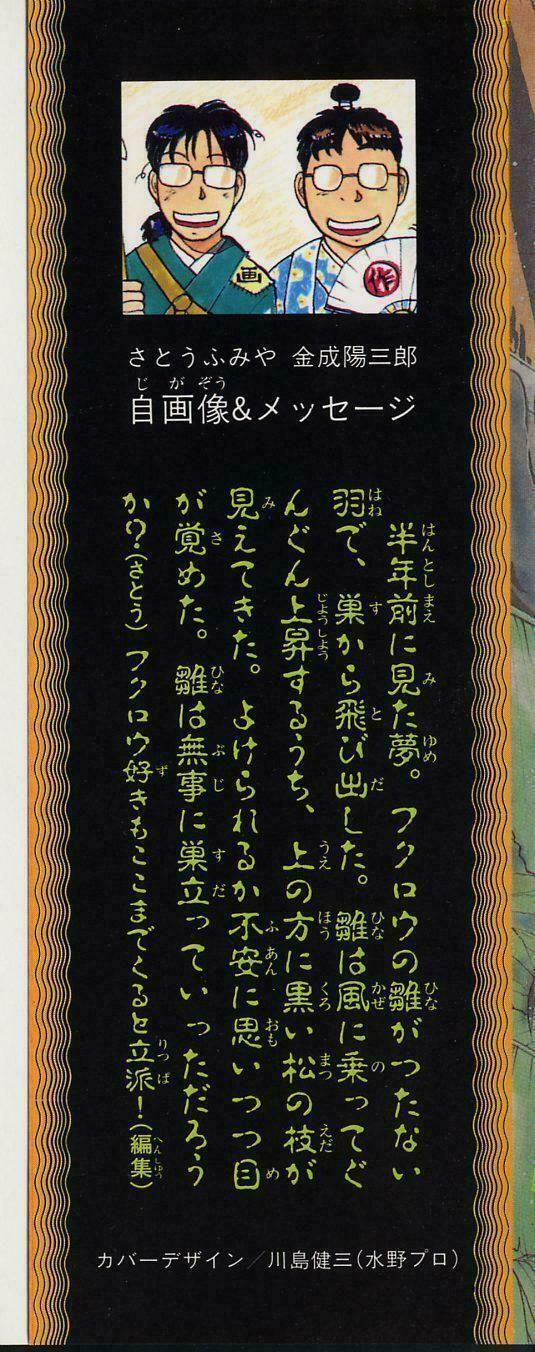 画
作
さとうふみや 金成陽三郎
自画像&メッセージ
半年前に見た夢。フクロウの雛がつたない
羽で、巣から飛び出した。雛は風に乗ってぐ
んぐん上昇するうち、上の方に黒い松の枝が
見えてきた。よけられるか不安に思いつつ目
が覚めた。雛は無事に巣立っていっただろう
か?(さとう)フクロウ好きもここまでくると立派!(編集)
カバーデザイン/川島健三(水野プロ)